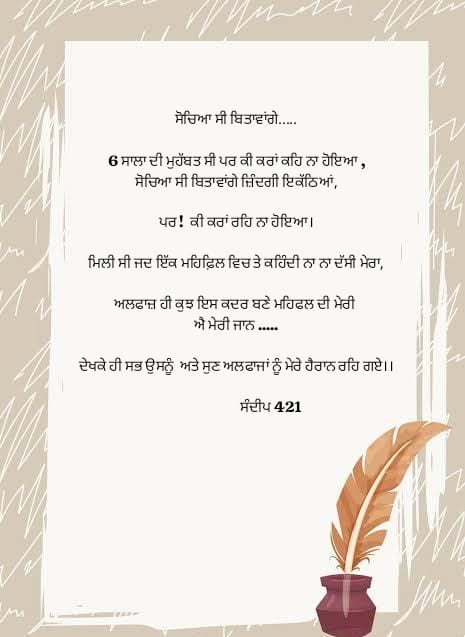 ਸੋਚਿਆ ਸੀ ਬਿਤਾਵਾਂਗੇ.....
6 ਸਾਲਾ ਦੀ ਮੁਹੱਬਤ ਸੀ ਪਰ ਕੀ ਕਰਾਂ ਕਹਿ ਨਾ ਹੋਇਆ ,
ਸੋਚਿਆ ਸੀ ਬਿਤਾਵਾਂਗੇ ਜ਼ਿੰਦਗੀ ਇਕੱਠਿਆਂ,
ਪਰ! ਕੀ ਕਰਾਂ ਰਹਿ ਨਾ ਹੋਇਆ।
ਮਿਲੀ ਸੀ ਜਦ ਇੱਕ ਮਹਿਫ਼ਿਲ ਵਿਚ ਤੇ ਕਹਿੰਦੀ ਨਾ ਨਾ ਦੱਸੀ ਮੇਰਾ,
ਅਲਫਾਜ਼ ਹੀ ਕੁਝ ਇਸ ਕਦਰ ਬਣੇ ਮਹਿਫਲ ਦੀ ਮੇਰੀ
ਐ ਮੇਰੀ ਜਾਨ .....
ਦੇਖਕੇ ਹੀ ਸਭ ਉਸਨੂੰ ਅਤੇ ਸੁਣ ਅਲਫਾਜਾਂ ਨੂੰ ਮੇਰੇ ਹੈਰਾਨ ਰਹਿ ਗਏ।।
ਸੰਦੀਪ 421